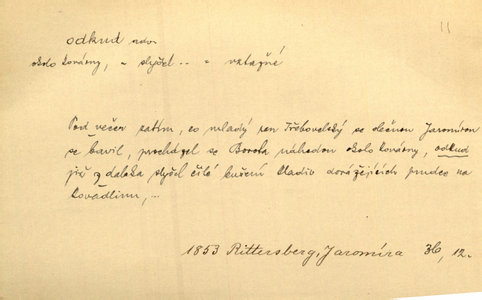 11
odkud
okolo kovárny, – slyšel .. – vztažné
Pod večer zatím, co mladý pan Třebovelský se slečnou Jaromírou
se bavil, procházel se Borota náhodou okolo kovárny, odkud
již z daleka slyšel čilé bušení kladiv dorážejících prudce na
kovadlinu, ...
1853 Rittersberg, Jaromíra 36, 12.